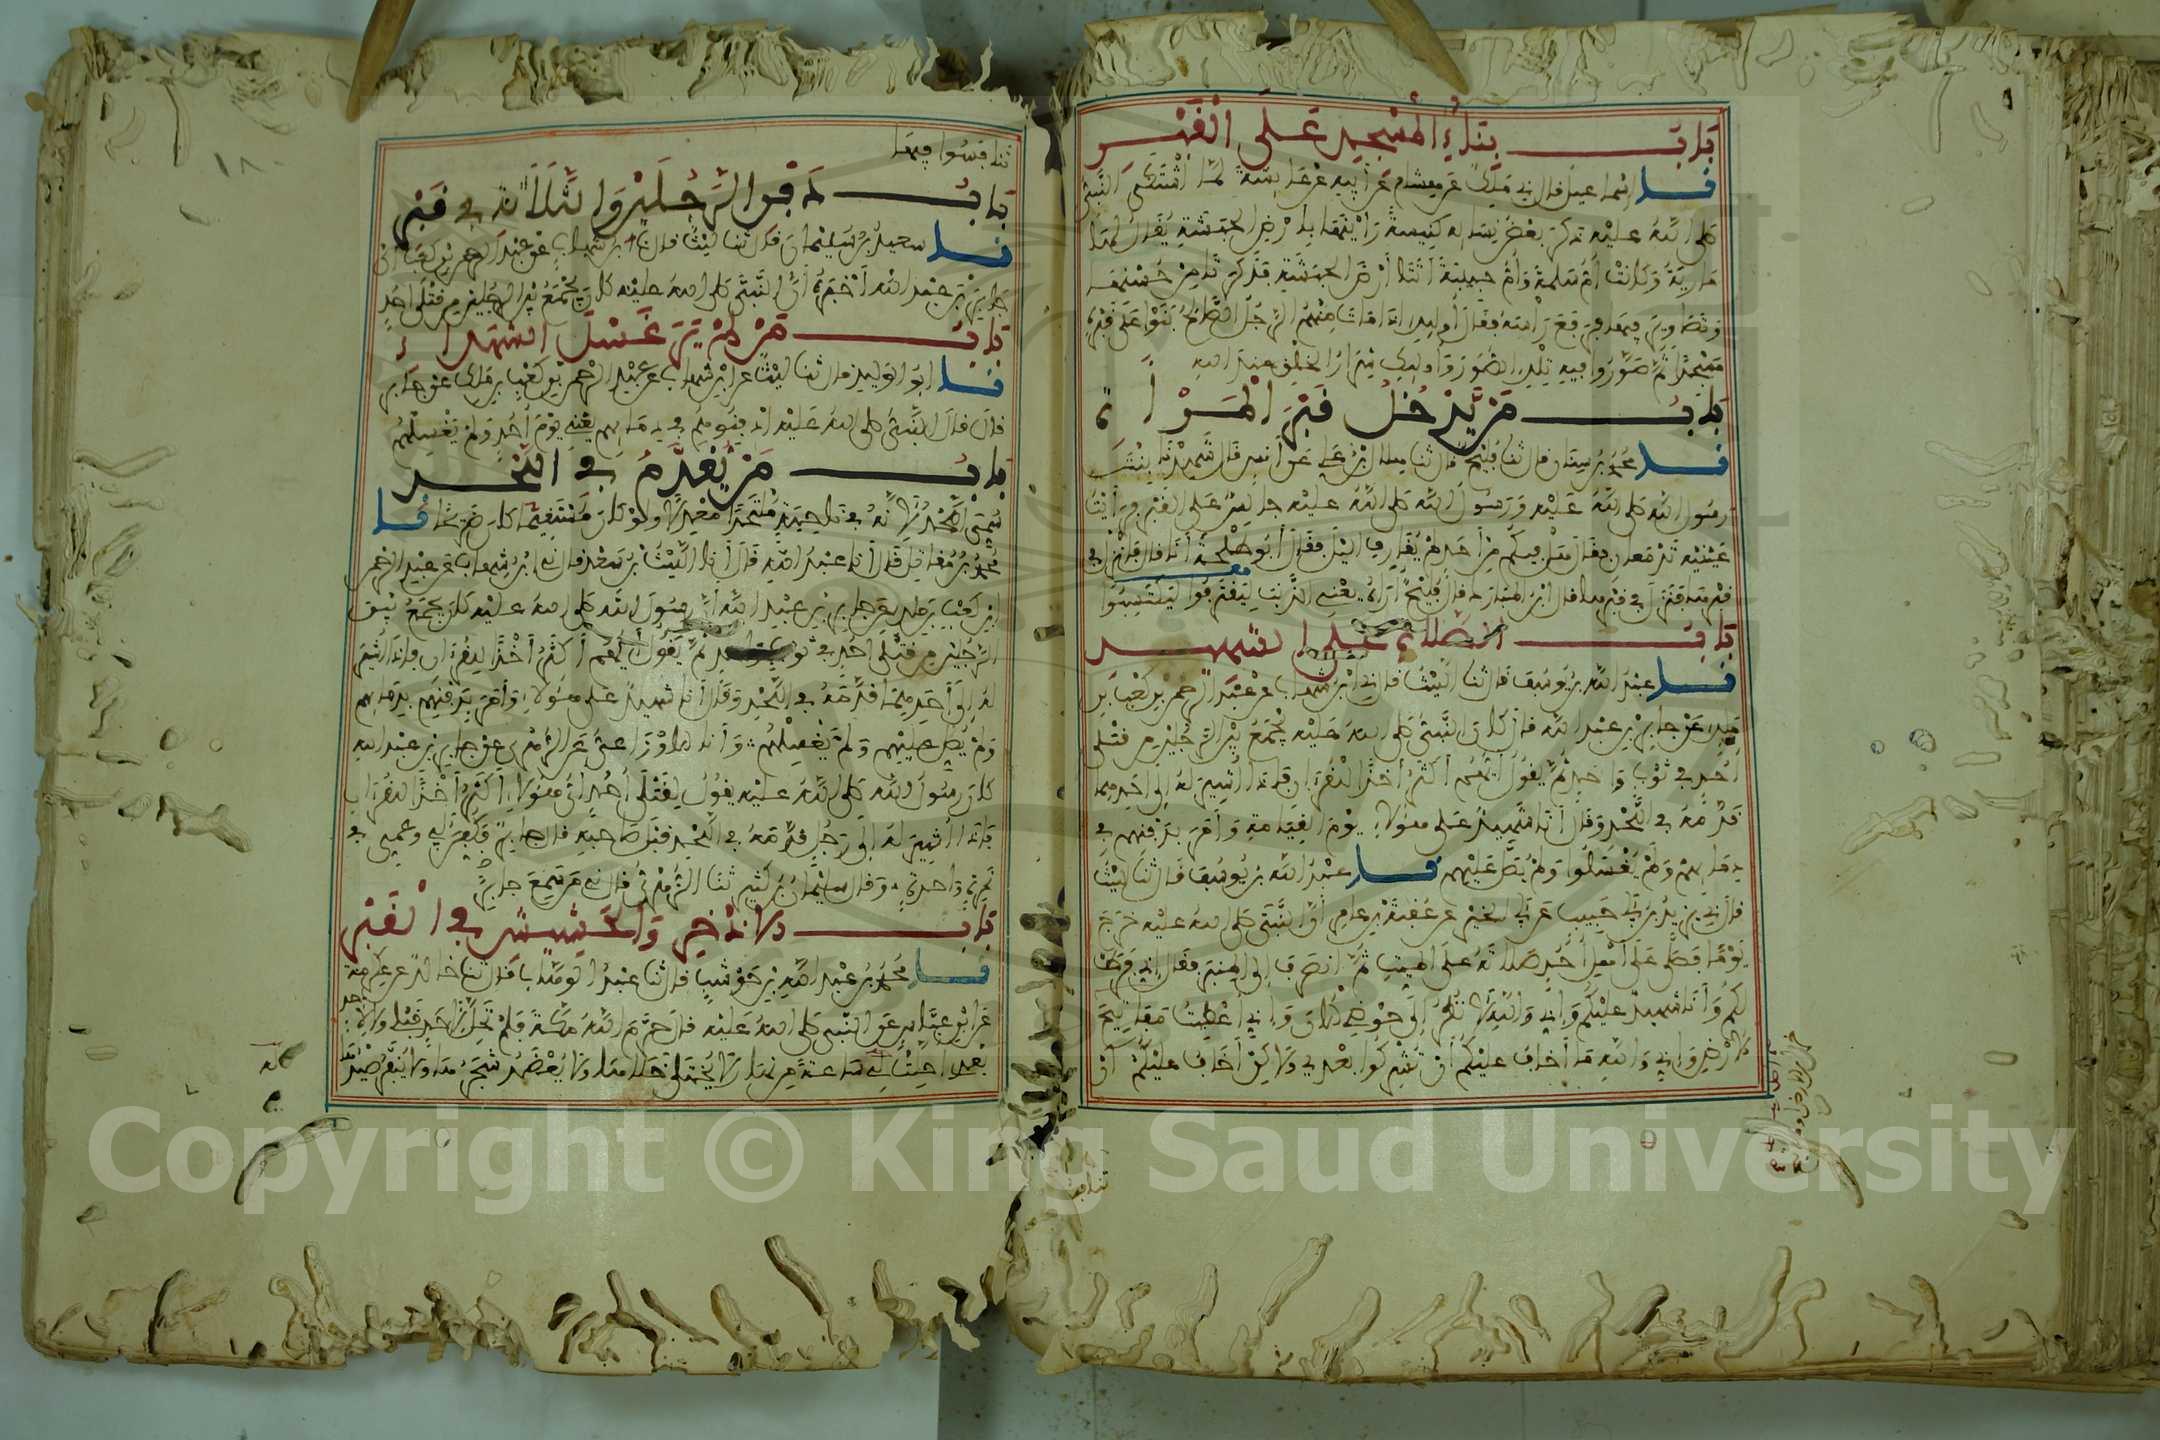 باب بناء المسجد على القبر
نا اسماعيل قال ني ملك عن هشام عن أبيه عن عايشة لما اشتكى النبي
صلى الله عليه ذكر بعض نسايه كنيسة رأينها بارض الحبشة يقال لها
مارية وكانت أم سلمة وأم حبيبة أتتا أرض الحبشة فذكرتا من حسنها
وتصاوير فيها فرفع رأسه فقال أوليك اذا مات منهم الرجل الصالح بنوا على قبره
مسجدا ثم صوروا فيه تلك الصور وأوليك شرار الخلق عند الله
باب من يدخل قبر المرأة
نا محمد بن سنان قال ثنا فليح قال ثنا هلال بن علي عن أنس قال شهدنا بنت
رسول الله صلى الله عليه ورسول الله صلى الله عليه جالس على القبر فرأيت
عينيه تدمعان فقال هل فيكم من أحد لم يقارف الليل فقال أبو طلحة أنا قال فانزل في
قبرها فنزل في قبرها قال ابن المبارك قال فليح أراه يعني الذنب ليقترفوا ليكتسبوا
باب الصلاة على الشهيد
نا عبد الله بن يوسف قال ثنا الليث قال ني ابن شهاب عن عبد الرحمن بن كعب بن
ملك عن جابر بن عبد الله قال كان النبي صلى الله عليه يجمع بين الرجلين من قتلى
أحد في ثوب واحد ثم يقول أيهم أكثر أخذا للقرءان فاذا أشير له الى احدهما
قدمه في اللحد وقال أنا شهيد على هؤلاء يوم القيامة وأمر بدفنهم في
دمايهم ولم يغسلوا ولم يصل عليهم نا عبد الله بن يوسف قال ثنا ليث
قال ني يزيد بن أبي حبيب عن أبي الخير عن عقبة بن عامر أن النبي صلى الله عليه خرج
يوما فصلى على أهل أحد صلاته على الميت ثم انصرف الى المنبر فقال اني فرط
لكم وأنا شهيد عليكم واني والله لانظر الى حوضي الان واني أعطيت مفاتيح
الارض واني والله ما أخاف عليكم أن تشركوا بعدي ولاكن أخاف عليكم أن
تنافسوا
١٨٠
تنافسوا فيها
باب دفن الرجلين والثلاثة في قبر
نا سعيد بن سليمان قال ثنا ليث قال نا ابن شهاب عن عبد الرحمن بن كعب ان
جابر بن عبد الله أخبره أن النبي صلى الله عليه كان يجمع بين الرجلين من قتلى احد
باب من لم ير غسل الشهداء
نا ابو الوليد قال ثنا ليث عن ابن شهاب عن عبد الرحمن بن كعب بن ملك عن جابر
قال قال النبي صلى الله عليه ادفنوهم في دمايهم يعني يوم أحد ولم يغسلهم
باب من يقدم في اللحد
سمي اللحد لانه في ناحية ملتحدا معدلا ولو كان مستقيما كان ضريحا نا
محمد بن مقاتل قال أنا عبد الله قال أنا الليث بن سعد قال ني ابن شهاب عن عبد الرحمن
ابن كعب بن ملك عن جابر بن عبد الله أن رسول الله صلى الله عليه كان يجمع بين
الرجلين من قتلى احد في ثوب واحد ثم يقول أيهم أكثر أخذا للقرءان فاذا أشير
له الى أحدهما قدمه في اللحد وقال أنا شهيد على هؤلاء وأمر بدفنهم بدمايهم
ولم يصل عليهم ولم يغسلهم وأنا الاوزاعي عن الزهري عن جابر بن عبد الله
كان رسول الله صلى الله عليه يقول لقتلى أحد أي هؤلاء أكثر أخذا للقرءان
فاذا أشير له الى رجل قدمه في اللحد قبل صاحبه قال جابر فكفن أبي وعمي في
نمرة واحدة وقال سليمان بن كثير ثنا الزهري قال ني من سمع جابرا
باب الاذخر والحشيش في القبر
نا محمد بن عبد الله بن حوشب قال ثنا عبد الوهاب قال ثنا خالد عن عكرمة
عن ابن عباس عن النبي صلى الله عليه قال حرم الله مكة فلم تحل لاحد قبلي ولا لاحد
بعدي أحلت لي ساعة من نهار لا يختلى خلاها ولا يعضد شجرها ولا ينفر صيدها
Copyright © King Saud University